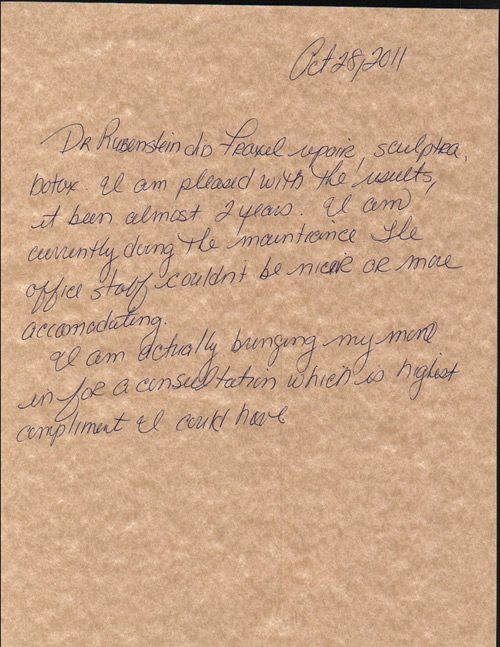 Oct 28, 2011
Dr Rubenstein did Fraxel repair, sculptra,
botox. I am pleased with the results,
it been almost 2 years. I am
currently doing the maintrance The
office staff couldn't be nicer or more
accomadating.
I am actually bringing my mom
in for a consultation which is highest
compliment I could have